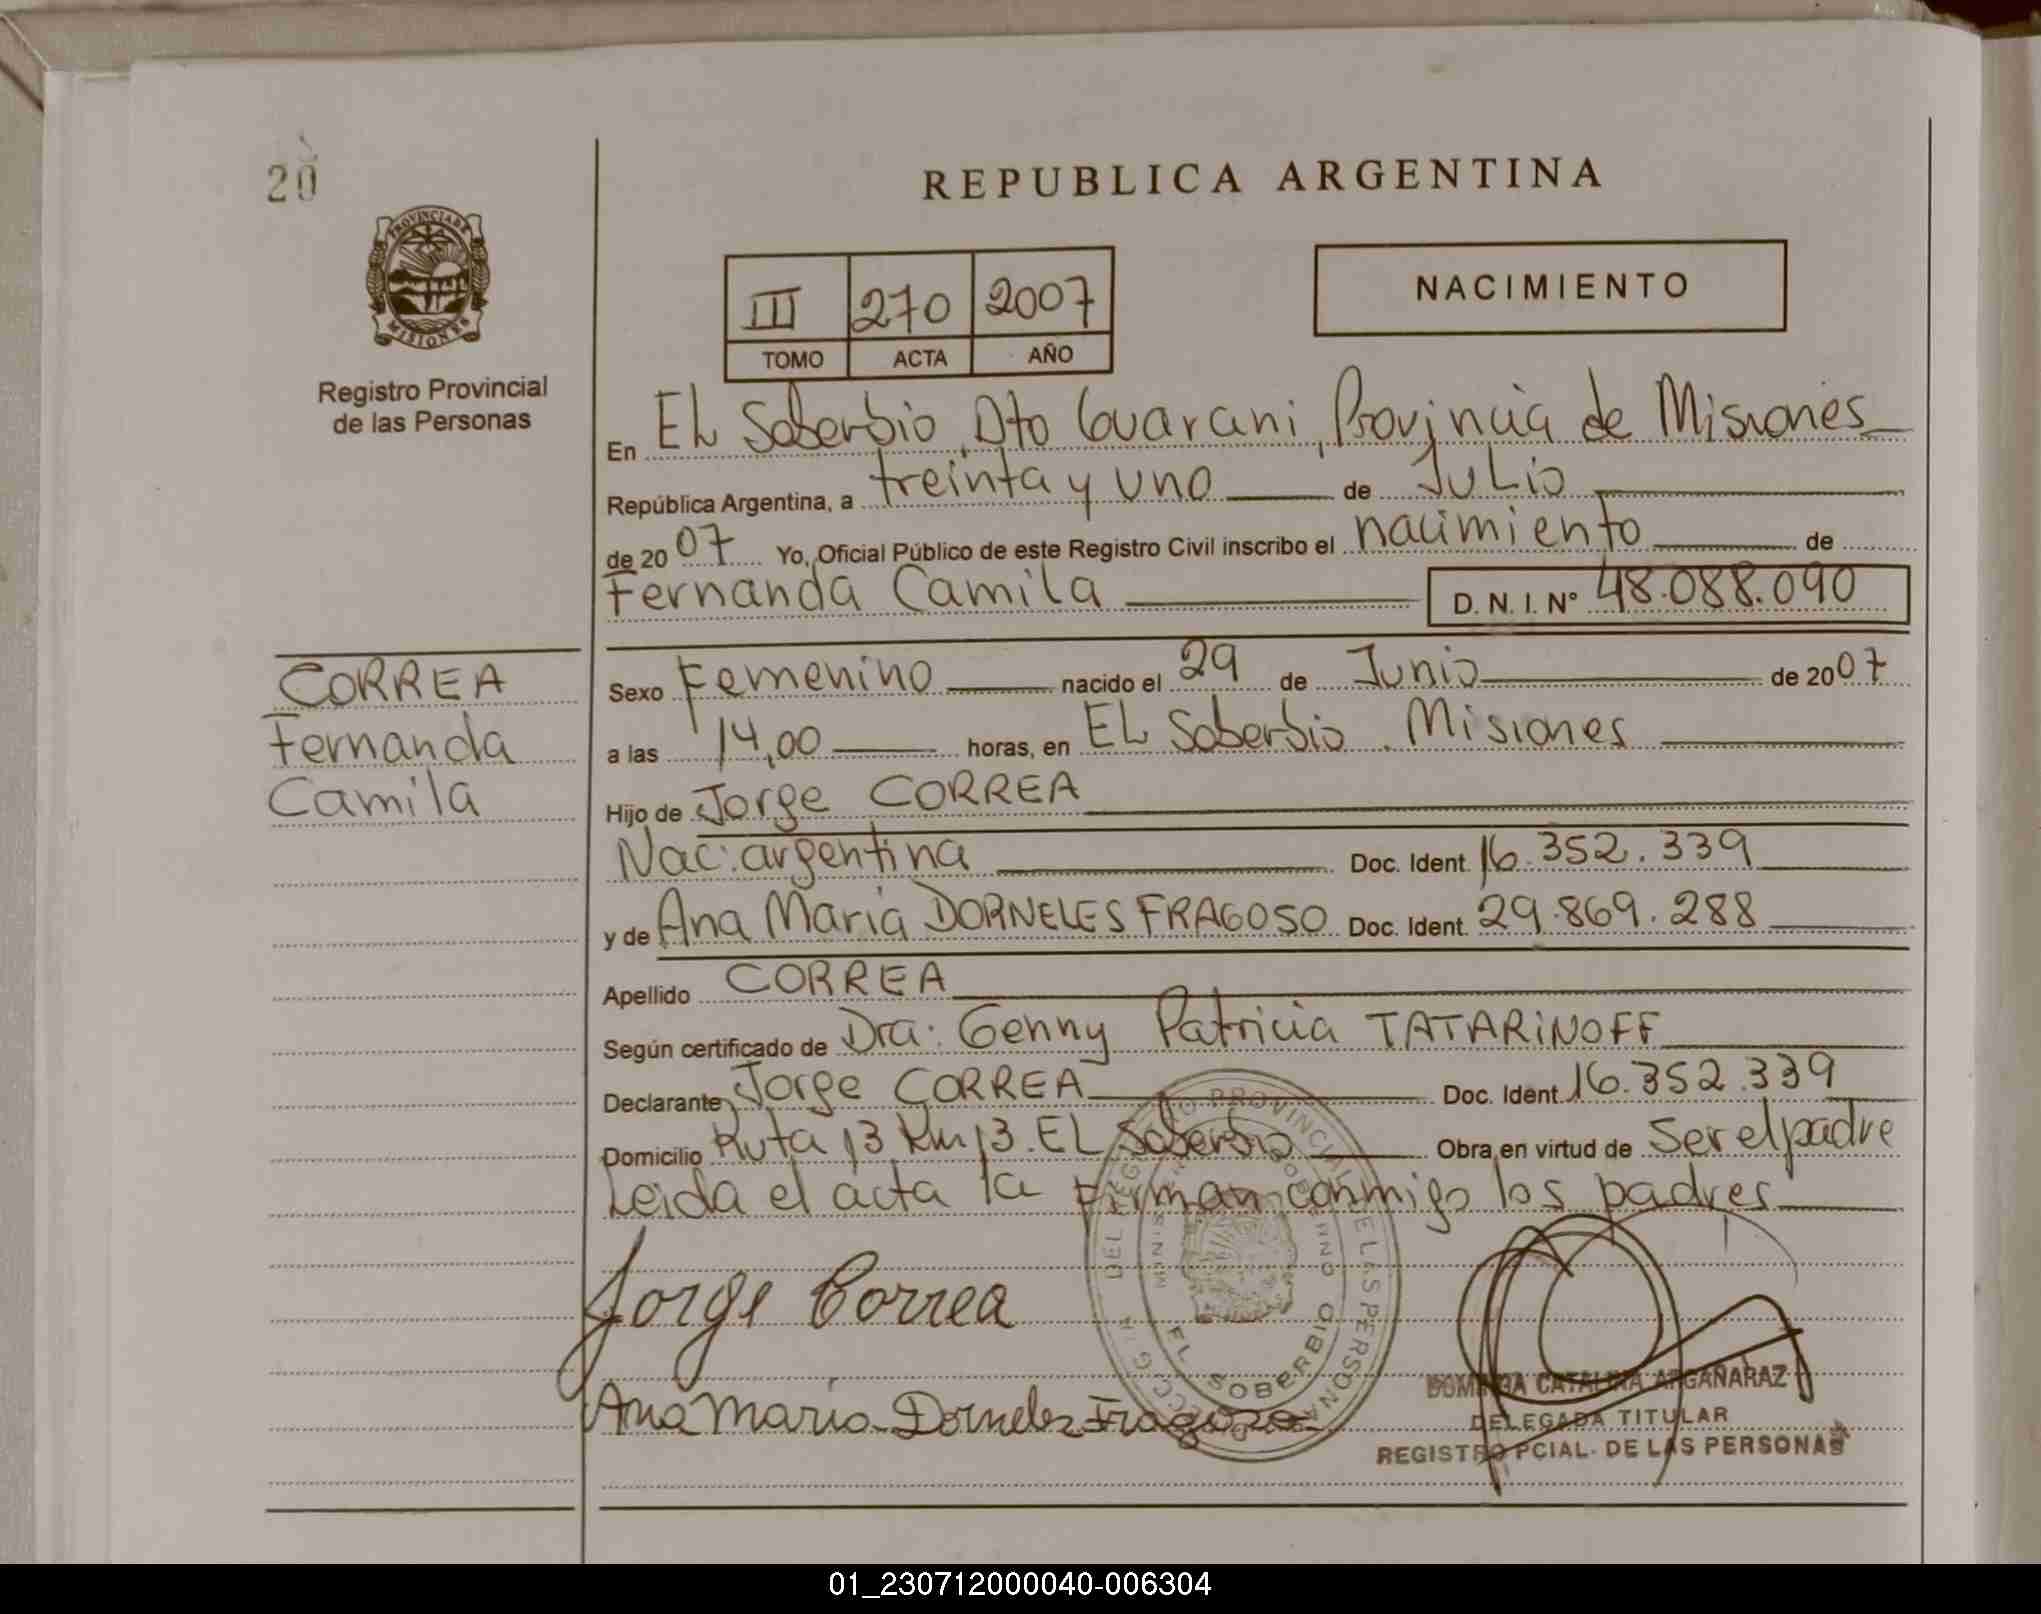 20
REPUBLICA ARGENTINA
PROVINCIA DE MISIONES
Registro Provincial
de las Personas
III 270 2007
TOMO ACTA AÑO
NACIMIENTO
En EL Soberbio, Dto Guarani, Provincia de Misiones
República Argentina, a treinta y uno de Julio
de 2007 Yo, Oficial Público de este Registro Civil inscribo el nacimiento de
Fernanda Camila D. N. I. N° 48.088.090
CORREA
Fernanda
Camila
Sexo Femenino nacido el 29 de Junio de 2007
a las 14,00 horas, en EL Soberbio. Misiones
Hijo de Jorge CORREA
Nac: argentina Doc. Ident. 16.352.339
y de Ana Maria DORNELES FRAGOSO Doc. Ident. 29.869.288
Apellido CORREA
Según certificado de Dra: Genny Patricia TATARINOFF
Declarante Jorge CORREA Doc. Ident. 16.352.339
Domicilio Ruta 13 Km 13. EL Soberbio Obra en virtud de Ser el padre
Leida el acta la firman conmigo los padres
Jorge Correa
Ana Maria Dorneles Fragozo
EL SOBERBIO
CATALINA ARGAÑARAZ
DELEGADA TITULAR
REGISTRO PCIAL. DE LAS PERSONAS
01_230712000040-006304